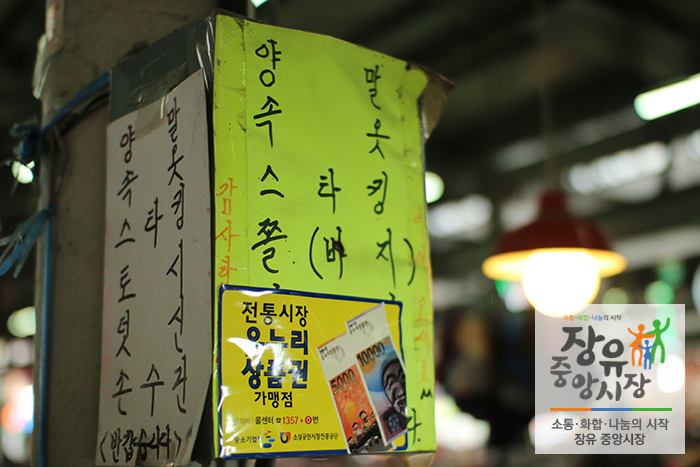 양말
속옷
스타킹
토시
덧신
손수건
(반갑습니다)
양말
속옷
스타킹
쫄(바지)
전통시장
온누리
상품권
가맹점
콜센터 ☎1357 ▶ 0 번
소상공인시장진흥공단
5000
10000
소통·화합·나눔의 시작
장유
중앙시장
소통·화합·나눔의 시작
장유 중앙시장